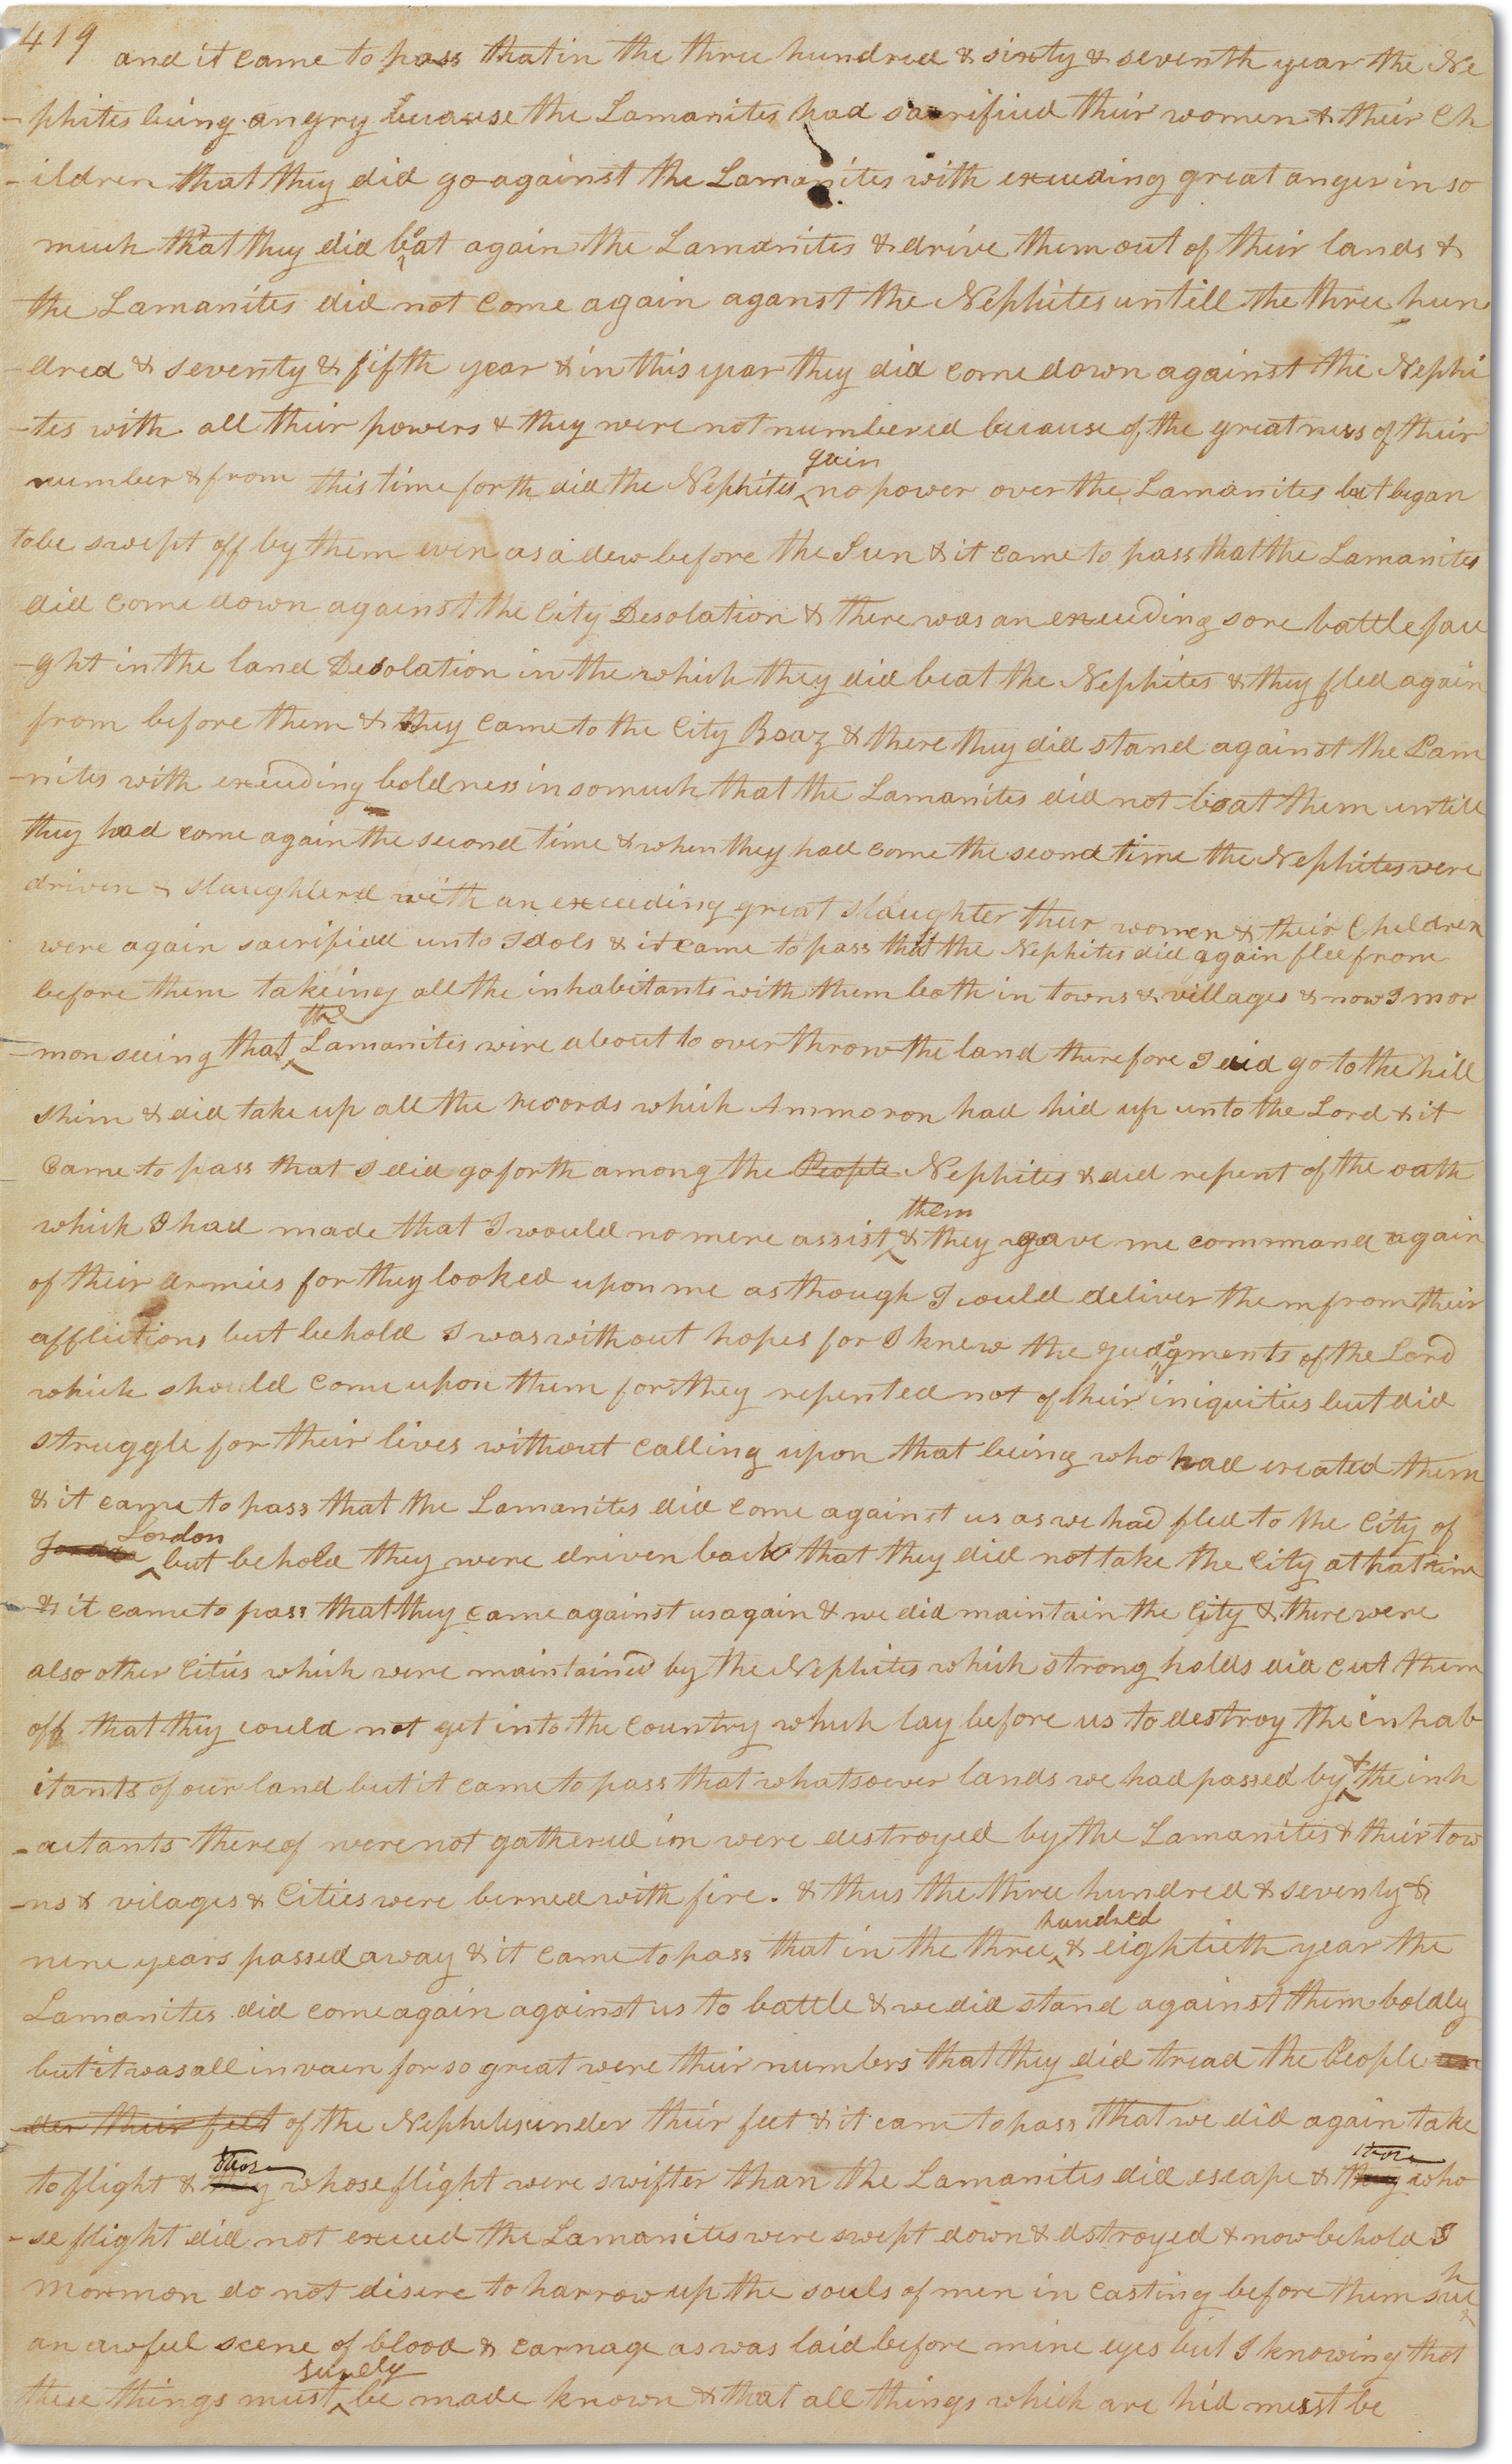 419
and it came to pass that in the three hundred & sixty & seventh year the Ne
-phites being angry because the Lamanites had sacrifised their women & their Ch
-ildren that they did go against the Lamanites with exceeding great anger in so
much that they did beat again the Lamanites & drive them out of their lands &
the Lamanites did not come again aganst the Nephites untill the three hun
-dred & seventy & fifth year & in this year they did come down against the Nephi
-tes with all their powers & they were not numbered because of the greatness of their
gain
number & from this time forth did the Nephites no power over the Lamanites but began
to be swept off by them even as a dew before the Sun & it came to pass that the Lamanites
did come down against the City Desolation & there was an exceeding sore battle fau
-ght in the land Desolation in the which they did beat the Nephites & they fled again
from before them & they came to the City Boaz & there they did stand against the Lam
-nites with exceeding boldness in somuch that the Lamanites did not beat them untill
they had come again the second time & when they had come the second time the Nephites were
driven & slaughterd with an exceeding great slaughter their women & their Children
were again sacrificed unto Idols & it came to pass that the Nephites did again flee from
before them takeing all the inhabitants with them both in towns & villages & now I mor
the
-mon seeing that Lamanites were about to over throw the land therefore I did go to the hill
Shim & did take up all the records which Ammoron had hid up unto the Lord & it
came to pass that I did go forth among the People Nephites & did repent of the oath
them
which I had made that I would no more assist & they gave me command again
of their armies for they looked upon me as though I could deliver them from their
afflictions but behold I was without hopes for I knew the judgments of the Lord
which should come upon them for they repented not of their iniquities but did
struggle for their lives without calling upon that being who had created them
& it came to pass that the Lamanites did come against us as we had fled to the City of
Jordon
but behold they were driven back that they did not take the City at that time
& it came to pass that they came against us again & we did maintain the City & there were
also other Cities which were maintained by the Nephites which strong holds did cut them
off that they could not get into the country which lay before us to destroy the inhab
&
itants of our land but it came to pass that whatsoever lands we had passed by the inh
-aitants thereof were not gathered in were destroyed by the Lamanites & their tow
-ns & vilages & Cities were berned with fire. & thus the three hundred & seventy &
hundred
nine years passed away & it came to pass that in the three & eightieth year the
Lamanites did come again against us to battle & we did stand against them boldly
but it was all in vain for so great were their numbers that they did tread the People un
-der their feet of the Nephites under their feet & it came to pass that we did again take
those those
to flight & they whose flight were swifter than the Lamanites did escape & they who
-se flight did not exceed the Lamanites were swept down & dstroyed & now behold I
h
Mormon do not desire to harrow up the souls of men in casting before them suc
an awful scene of blood & carnage as was laid before mine eyes but I knowing that
surely
these things must be made known & that all things which are hid must be